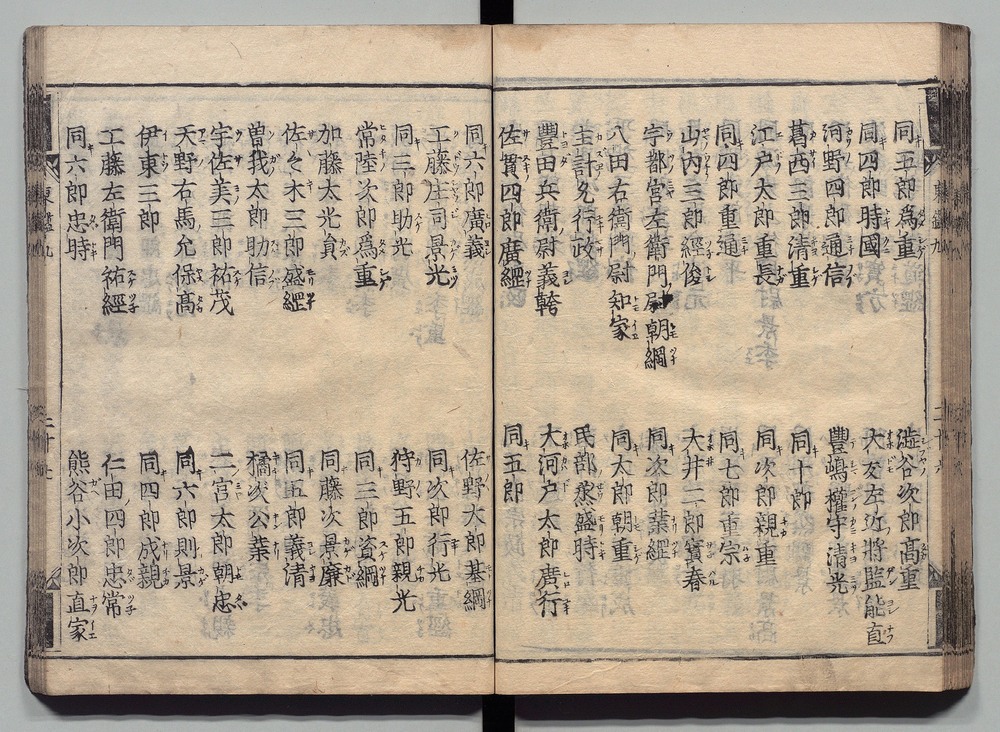 東鑑九 二十六
同五郎爲重 澁谷次郎高重
同四郎時國 大友左近將監能直
河野四郎通信 豐嶋權守清光
葛西三郎清重 同十郎
江戸太郎重長 同次郎親重
同四郎重通 同七郎重宗
山内三郎經俊 大井二郎實春
宇都宮左衛門尉朝綱 同次郎業綱
八田右衛門尉知家 同太郎朝重
主計允行政 民部烝盛時
豐田兵衛尉義幹 大河戸太郎廣行
佐貫四郎廣綱 同五郎
同六郎廣義 佐野太郎基綱
工藤庄司景光 同次郎行光
同三郎助光 狩野五郎親光
常陸次郎爲重 同三郎資綱
加藤太光員 同藤次景廉
佐々木三郎盛綱 同五郎義清
曽我太郎助信 橘次公業
宇佐美三郎祐茂 二宮太郎朝忠
天野右馬允保高 同六郎則景
伊東三郎 同四郎成親
工藤左衛門祐經 仁田四郎忠常
同六郎忠時 熊谷小次郎直家
東鑑九 二十七